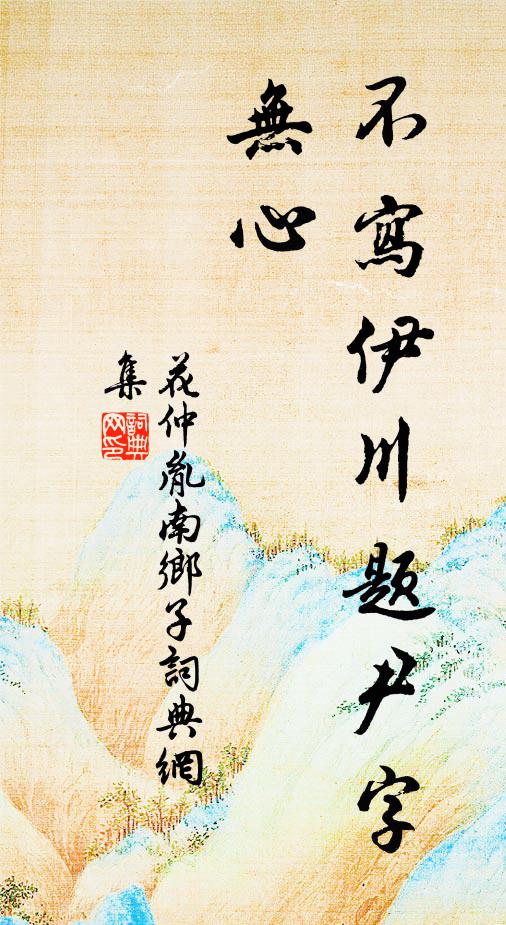 不寫伊川題尹字
無心
花仲胤南鄉子詞典網
集
詞典
网印